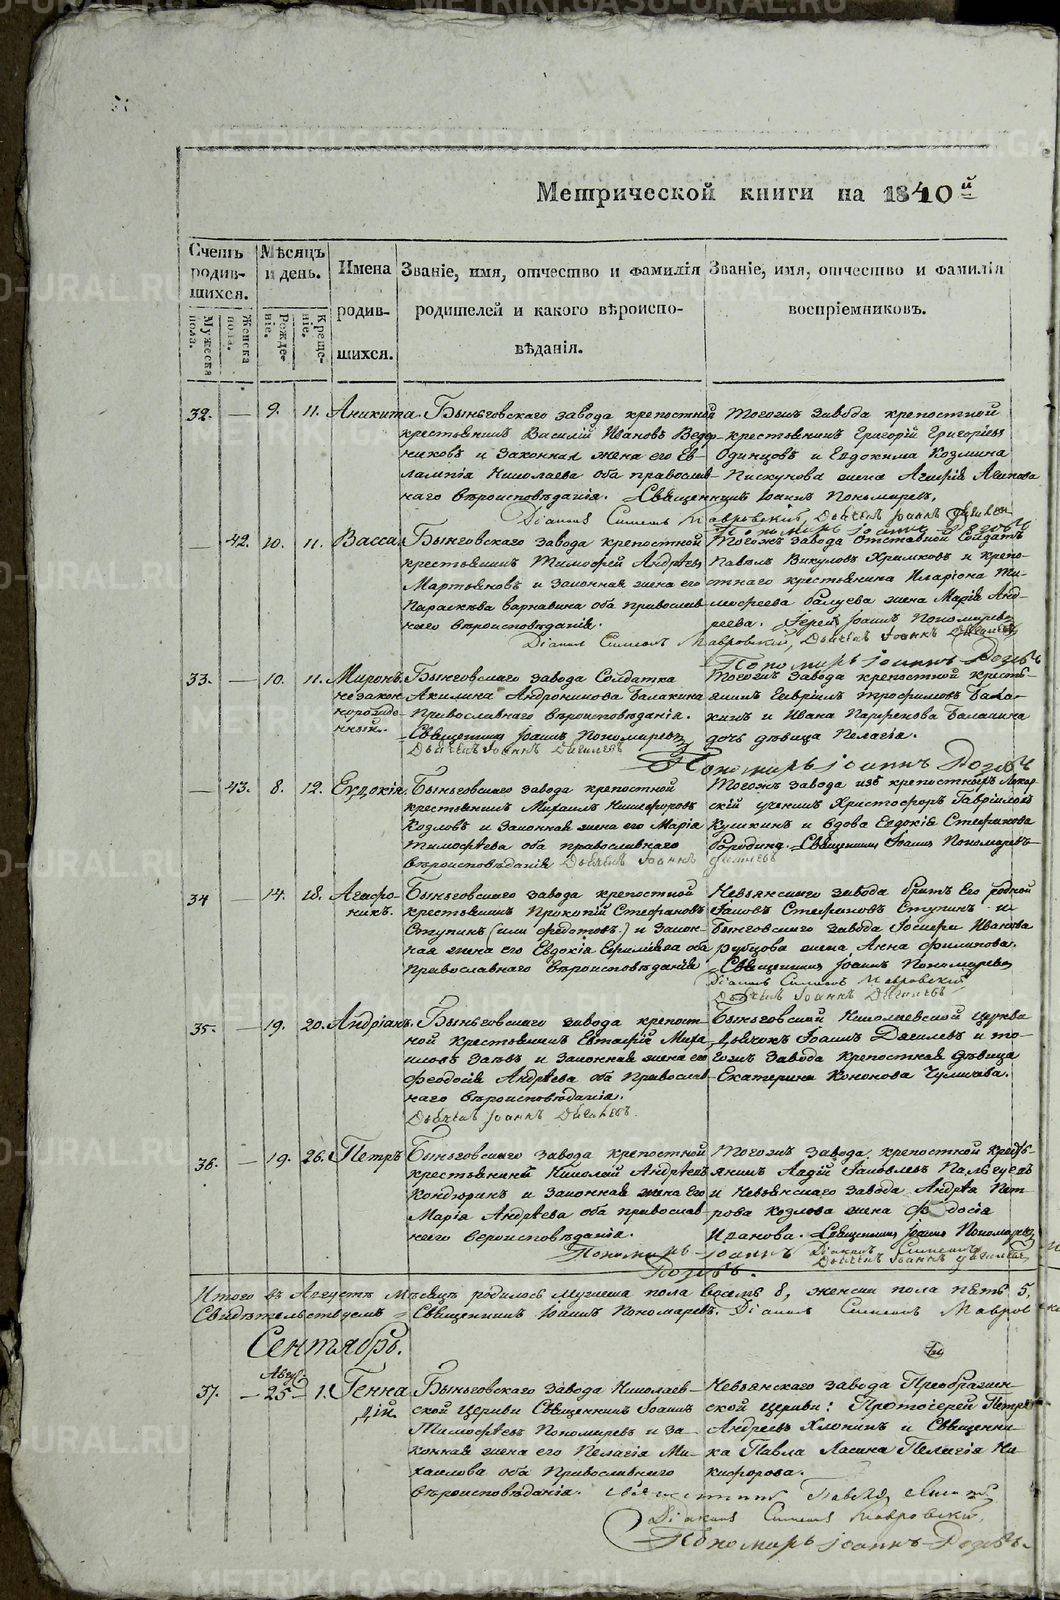 Метрической книги на 1840й
Счетъ родив- шихся.
Мѣсяцъ и день.
Имена родив- шихся.
Званіе, имя, отчество и фамилія родителей и какого вѣроиспо- вѣданія.
Званіе, имя, отчество и фамилія воспріемниковъ.
Мужеска пола.
Женска пола.
Рожде- ніе.
Креще- ніе.
32. — 9. 11. Аникита. Быньговскаго завода крепостной
крестьянинъ Василій Ивановъ Ведер-
никовъ и законная жена его Ев-
лампія Николаева оба православ-
наго вѣроисповѣданія. Священникъ Іоаннъ Пономаревъ,
Тогожъ завода крепостной
крестьянинъ Григорій Григорьевъ
Одинцовъ и Евдокима Козмина
Пискунова жена
Діаконъ Симеонъ Мавровскій, Дьячекъ Іоаннъ Дягилевъ
Пономарь Іоаннъ
— 42. 10. 11. Васса. Быньговскаго завода крепостной
крестьянинъ Тимофей Андреевъ
Мартьяновъ и законная жена его
Параскева Варнавина оба православ-
наго вѣроисповѣданія.
Тогожъ завода отставной солдатъ
Павелъ Викуловъ Храмковъ и крепо-
стнаго крестьянина Иларіона Ти-
мофеева Балуева жена Марія Анд-
реева. Іерей Іоаннъ Пономаревъ
Діаконъ Симеонъ Мавровскій, Дьячекъ Іоаннъ Дягилевъ
Пономарь Іоаннъ
33. — 10. 11. Миронъ
незакон-
норожде-
нный.
Быньговскаго завода Солдатка
Акилина Андроникова Балакина
Православнаго вѣроисповѣданія.
Священникъ Іоаннъ Пономаревъ
Дьячекъ Іоаннъ Дягилевъ
Тогожъ завода крепостной кресть-
янинъ Гавріилъ Трофимовъ Бала-
кинъ и Ивана Парфенова Балакина
дочь дѣвица Пелагія.
Пономарь Іоаннъ
— 43. 8. 12. Евдокія. Быньговскаго завода крепостной
крестьянинъ Михаилъ Никифоровъ
Козловъ и законная жена его Марія
Тимофѣева оба православнаго
вѣроисповѣданія Дьячекъ Іоаннъ Дягилевъ
Тогожъ завода изъ крепостныхъ Лекар-
скій ученикъ Христофоръ Гавріиловъ
Кушкинъ и вдова Евдокія Стефанова
Бородина. Священникъ Іоаннъ Пономаревъ
34 14. 18. Агафо-
никъ.
Быньговскаго завода крепостной
крестьянинъ Прокопій Стефановъ
Ступинъ (или Федотовъ.) и закон-
ная жена его Евдокія Ефимова оба
Православнаго вѣроисповѣданія
Невьянскаго завода братъ его родной
Іаковъ Стефановъ Ступинъ и
Быньговскаго завода Іосифа Иванова
Рубцова жена Анна Филипова.
Священникъ Іоаннъ Пономаревъ
Діаконъ Симеонъ Мавровскій
Дьячекъ Іоаннъ Дягилевъ
35. — 19. 20. Андріанъ. Быньговскаго завода крепост-
ной крестьянинъ Евстафій Миха-
иловъ Заевъ и законная жена его
Феодосія Андрѣева оба Православ-
наго вѣроисповѣданія.
Дьячекъ Іоаннъ Дягилевъ.
Быньговской Николаевской церкви
дьячокъ Іоаннъ Дягилевъ и то-
гожъ завода крепостная дѣвица
Екатерина Кононова
36. — 19. 26. Петръ Быньговскаго завода крепостной
крестьянинъ Николай Андреевъ
и законная жена его
Марія Андрѣева оба православ-
наго вероисповѣданія.
Тогожъ завода, крепостной кресть-
янинъ Авдій Іаковлевъ
и Невьянскаго завода Андрея Пет-
рова Козлова жена Феодосія
Иванова. Священникъ Іоаннъ Пономаревъ
Пономарь Іоаннъ
Діаконъ Симеонъ
Дьячекъ Іоаннъ Дягилевъ
Итого въ Августѣ мѣсяцѣ родилось мужеска пола восемь 8, женска пола пять 5,
Свидѣтельствуемъ Священникъ Іоаннъ Пономаревъ. Діаконъ Симеонъ Мавров
Сентябрь.
37. — Авг. 25 — 1. Генна-
дій.
Быньговскаго завода Николаев-
ской церкви Священникъ Іоаннъ
Тимофѣевъ Пономаревъ и за-
конная жена его Пелагія Ми-
хаилова оба Православнаго
вѣроисповѣданія.
Невьянскаго завода Преображен-
ской церкви: Протоіерей Петръ
Андреевъ Хлопинъ и Священни-
ка Павла Ласина Пелагія Ни-
кифорова.
Діаконъ Симеонъ Мавровскій,
Пономарь Іоаннъ